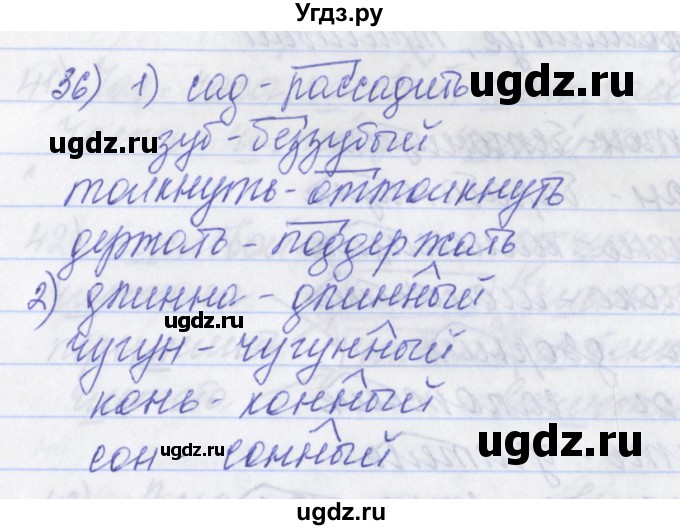 Угдз.ру
36) 1) сад - рассадить
ugdz.ru
зуб - беззубый
ugdz.ru
толкнуть - оттолкнуть
держать - поддержать
ugdz.ru
2) длинна - длинный
ugdz.ru
чугун - чугунный
конь - конный
ugdz.ru
ugdz.ru
сон - сонный
ugdz.ru